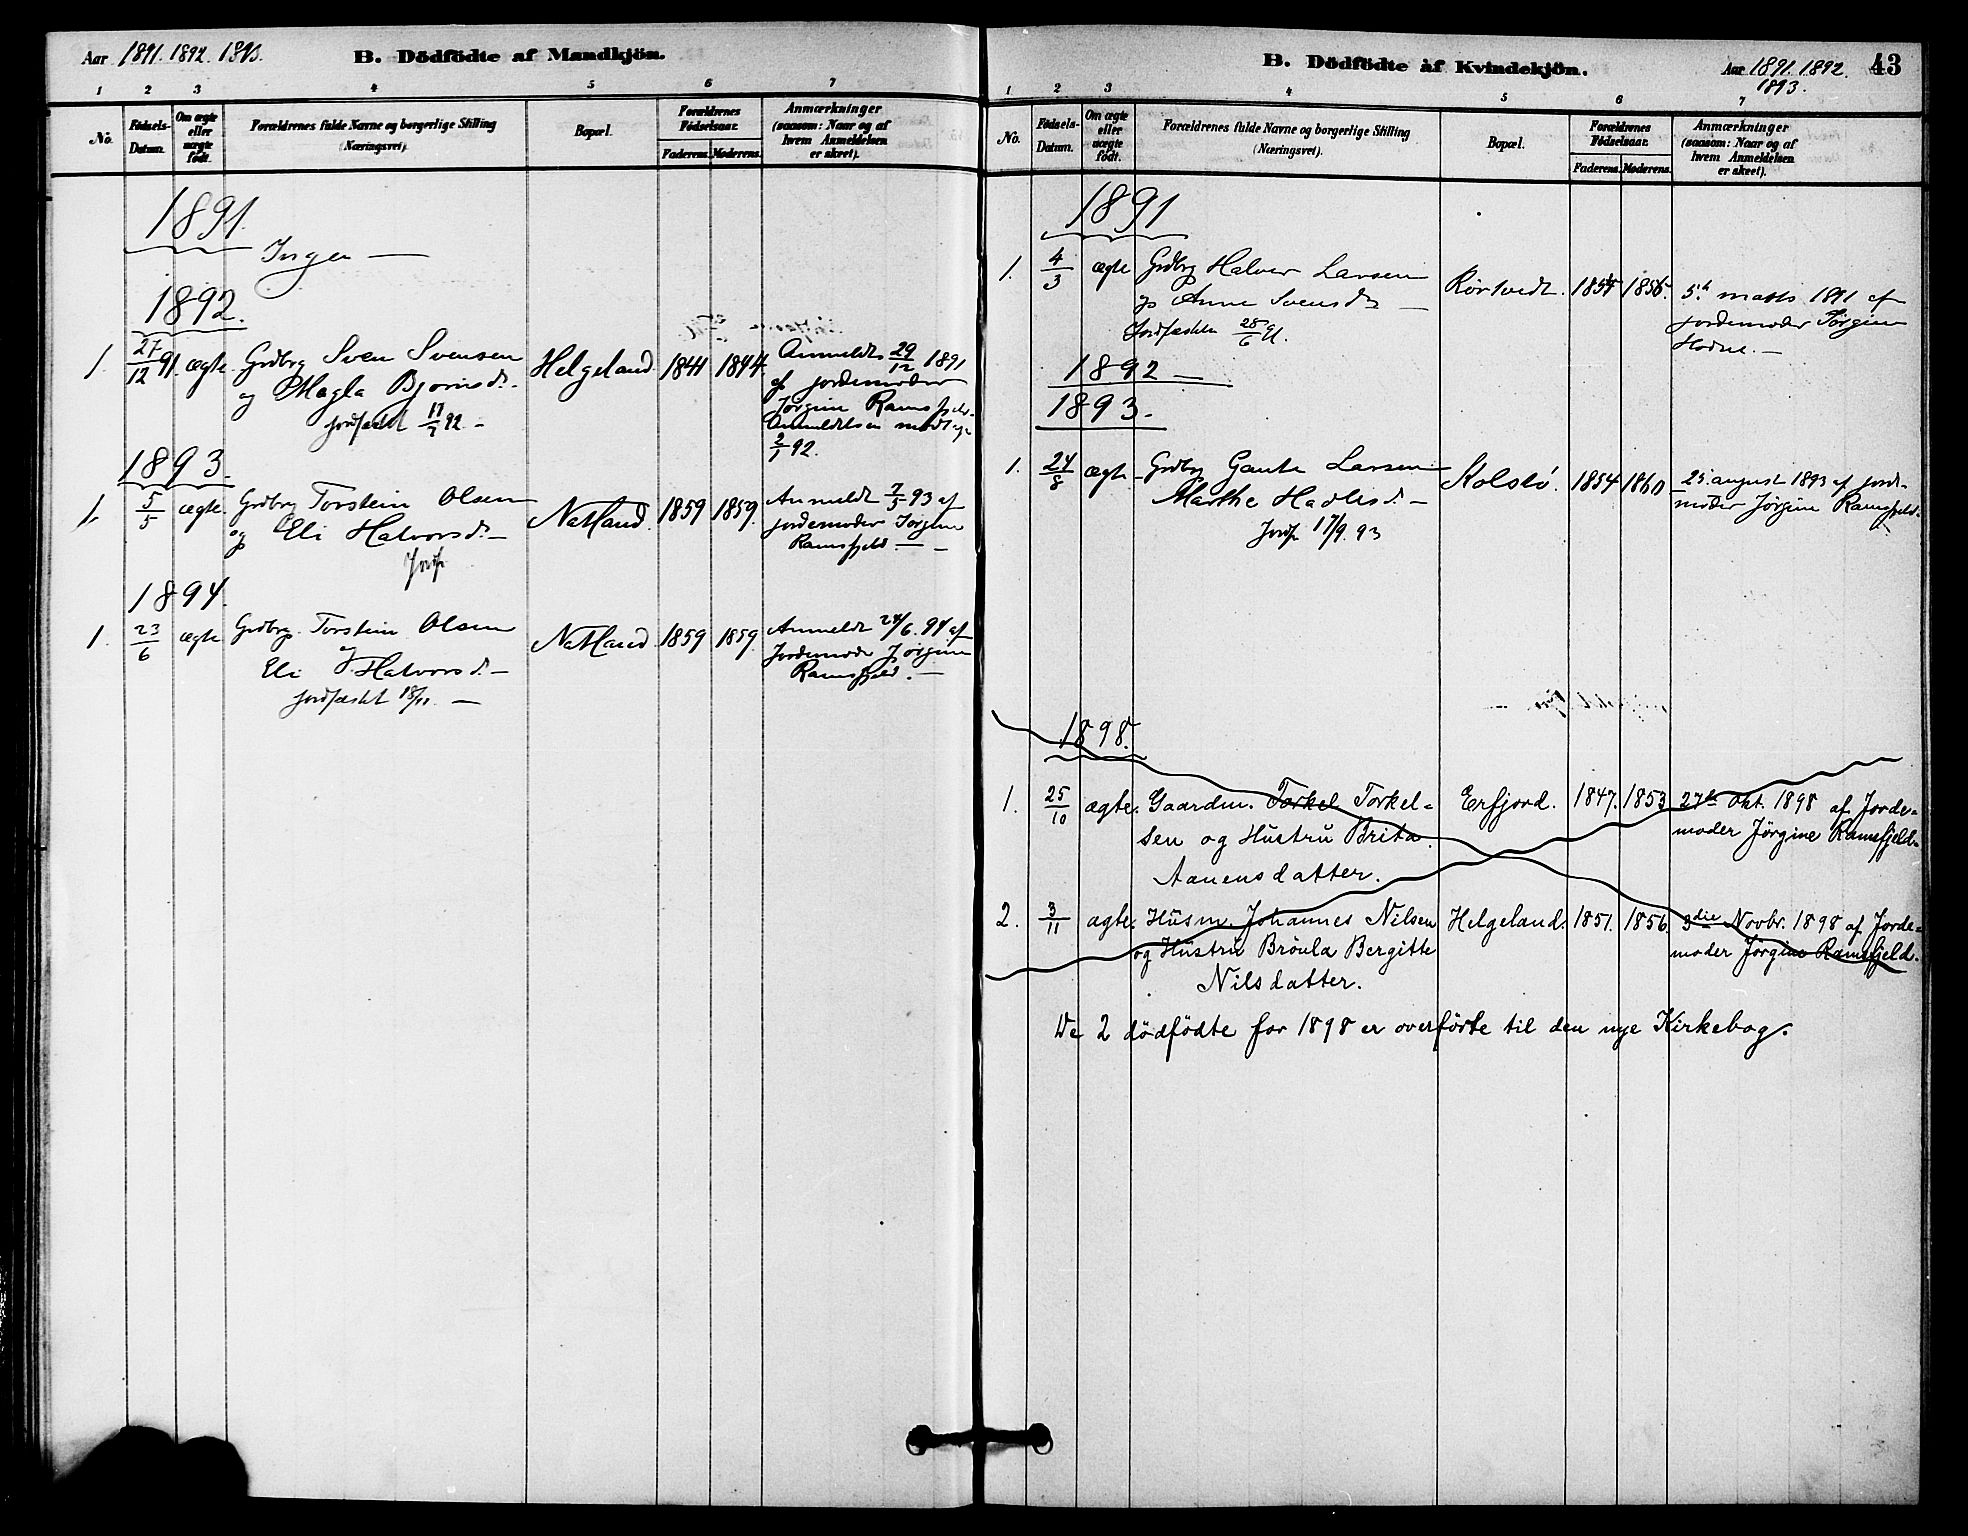 Aar 1891. 1892. 1893.
B. Dödfödte af Mandkjön.
1 2 3 4 5 6 7
No.
Fødsels-
Datum.
Om ægte
eller
uægte
født.
Forældrenes fulde Navne og borgerlige Stilling
(Næringsvei).
Bopæl.
Forældrenes
Fødselsaar.
Faderens. Moderens.
Anmærkninger
(saasom: Naar og af
hvem Anmeldelsen
er skeet).
1891.
Ingen —
1892.
1. 27/12 91. ægte. Grdbrg Sven Svensen
og Magla Bjørnsd. -
jordfæstet 17/7 92. -
Helgeland 1841 1844.
Anmeldt 29/12 1891
af jordemoder
Jørgine Ramsfjeld.
Anmeldelsen
2/1 92.
1893.
1. 5/5 ægte. Grdbrg Torstein Olsen
og Eli Halvorsd. —
Jordf.
Natland. 1859 1859.
Anmeldt 7/5 93 af
jordemoder Jørgine
Ramsfjeld. —
1894.
1. 23/6 ægte Grdbrg. Torstein Olsen
og
Eli Halvorsd. —
jordfæstet 18/11. —
Natland. 1859 1859.
Anmeldt 24/6. 94 af
Jordemoder Jørgine
Ramsfjeld. —
B. Dödfödte af Kvindekjön.
Aar 1891. 1892.
1893.
43
1 2 3 4 5 6 7
No.
Fødsels-
Datum.
Om ægte
eller
uægte
født.
Forældrenes fulde Navne og borgerlige Stilling
(Næringsvei).
Bopæl.
Forældrenes
Fødselsaar.
Faderens. Moderens.
Anmærkninger
(saasom: Naar og af
hvem Anmeldelsen
er skeet).
1891
1. 4/3 ægte Grdbrg Halvor Larsen
og Anne Svensdr —
Jordfæstet 28/6 91.
Rørtvedt. 1856.
5te marts 1891 af
jordemoder Jørgine
1892 —
1893.
1. 24/8 ægte Grdbrg Gaute Larsen
Marthe —
Jordf. 17/9. 93
Kolstø. 1854 1860
25. august 1893 af jord-
moder Jørgine Ramsfjeld.
1898.
1. 25/10 ægte. Gaardm. Torkel Torkel-
sen og Hustru Brita
Aanensdatter.
Erfjord. 1847. 1853
27de Okt. 1898 af Jorde-
moder Jørgine Ramsfjeld.
2. 3/11 ægte. Husm. Johannes Nilsen
og Hustru Bröula Bergitte
Nilsdatter.
Helgeland. 1851. 1856.
3die Novbr. 1898 af Jorde-
moder Jørgine Ramsfjeld.
De 2 dödfödte for 1898 er overförte til den nye Kirkebog.